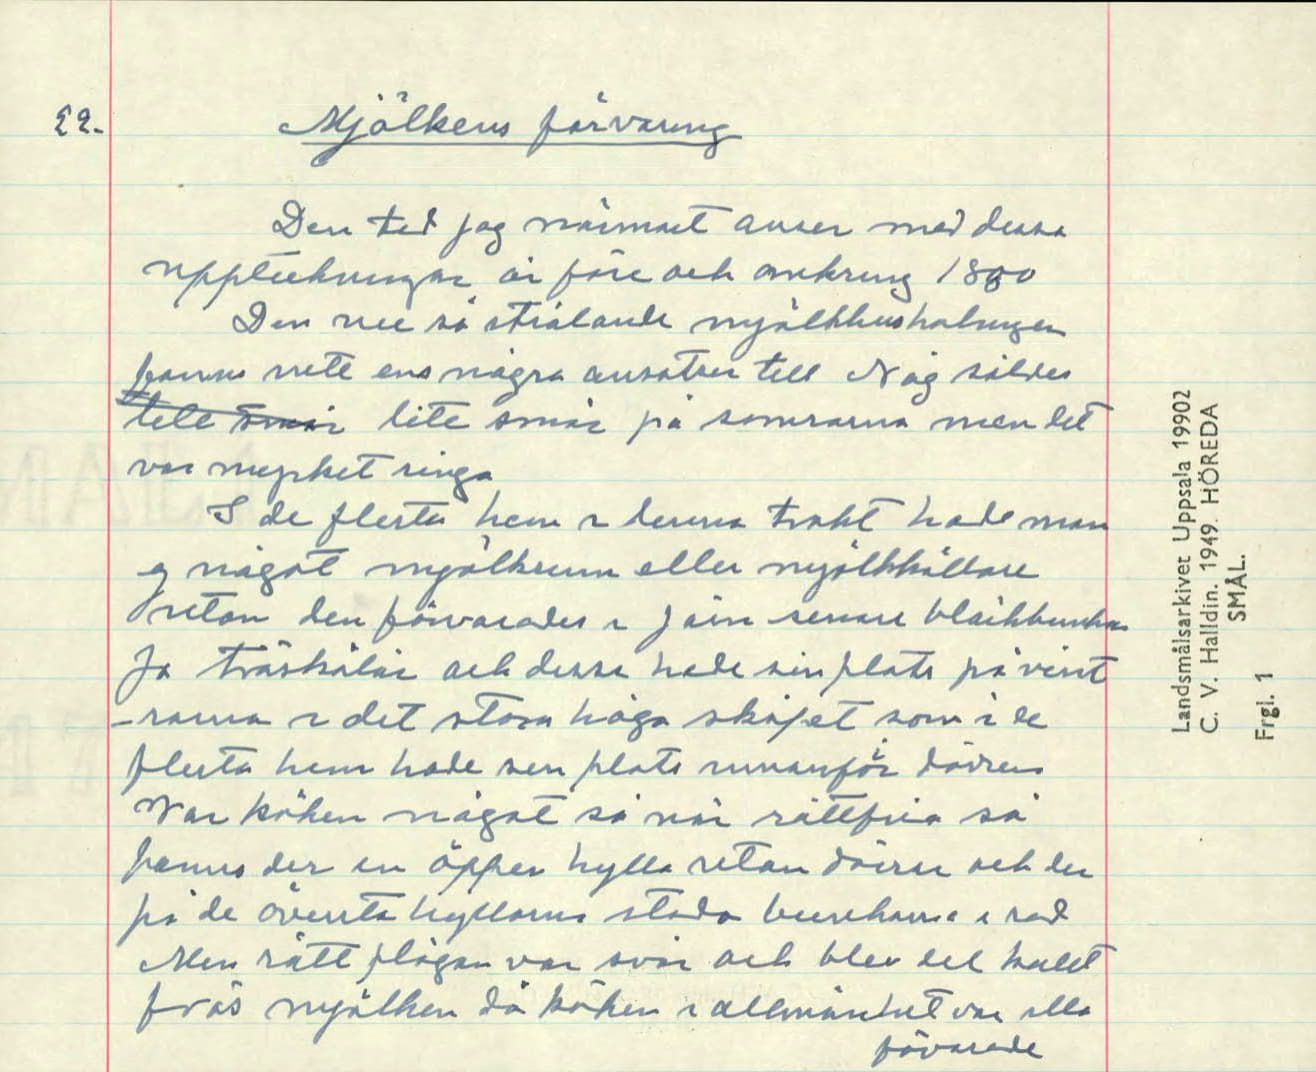 22.
Mjölkens förvaring
Den tid jag närmast avser med dessa
uppteckningar är före och omkring 1880
Den nu så strålande mjölkhushålningen
fanns inte ens några ansatser till Nog såldes
till smör lite smör på somrarna men det
var mycket ringa
I de flesta hem i denna trakt hade man
ej något mjölkrum eller mjölkkällare
utan den förvarades i järn senare bläckbunkar
Ja träskålar och dessa hade sin plats på vint
-rarna i det stora höga skåpet som i de
flesta hem hade sin plats innanför dörren
Var köken något så när råttfria så
fanns der en öppen hylla utan dörrar och der
på de översta hyllorna stodo bunkarna i rad
Men rått plågan var svår och blev det kallt
frös mjölken då köken i allmänhet var illa
förvarade
Landsmålsarkivet Uppsala 19902
C. V. Halldin. 1949. HÖREDA
SMÅL.
Frgl. 1